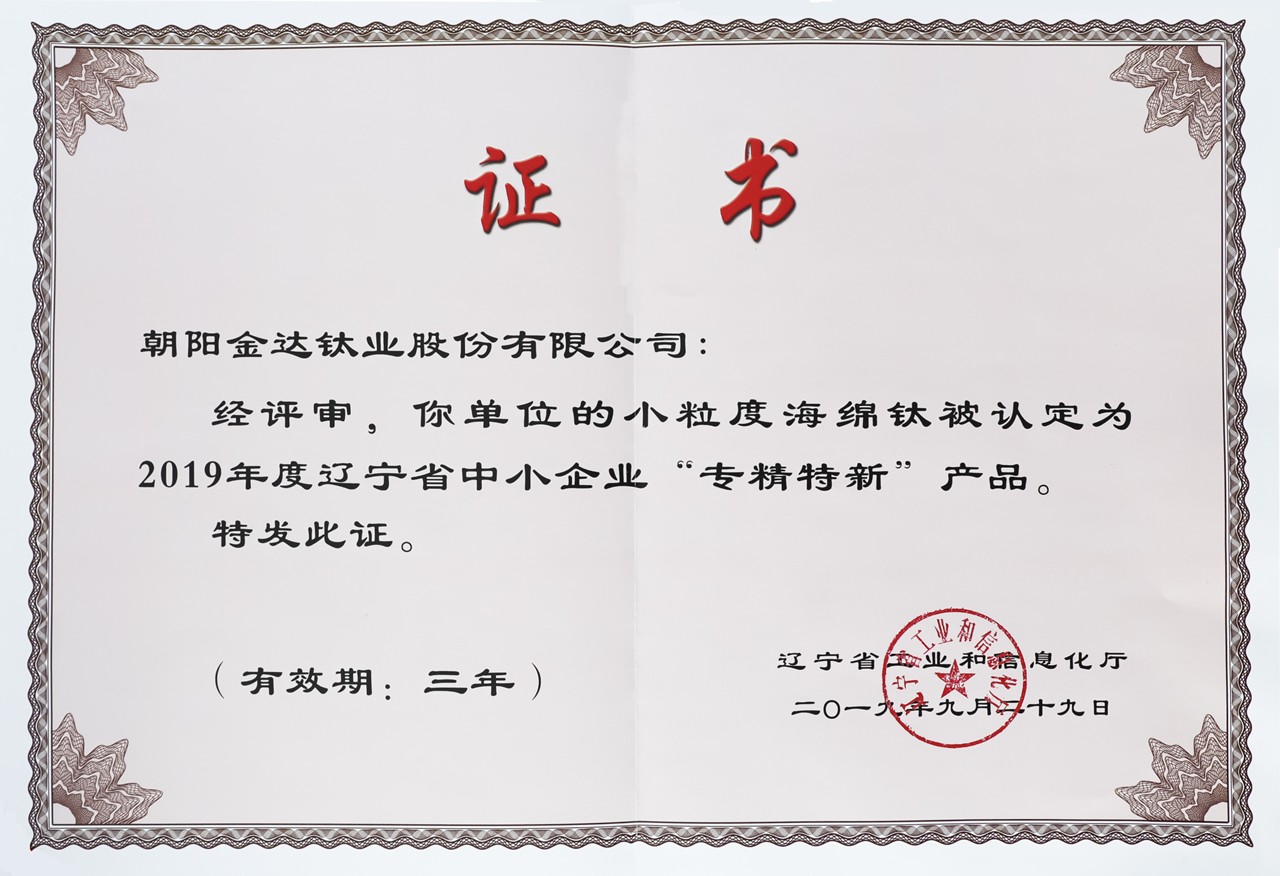 证书
朝阳金达钛业股份有限公司：
经评审，你单位的小粒度海绵钛被认定为
2019年度辽宁省中小企业“专精特新”产品。
特发此证。
（有效期：三年）
辽宁省工业和信息化厅
二〇一九年九月二十九日
辽宁省工业和信息化厅